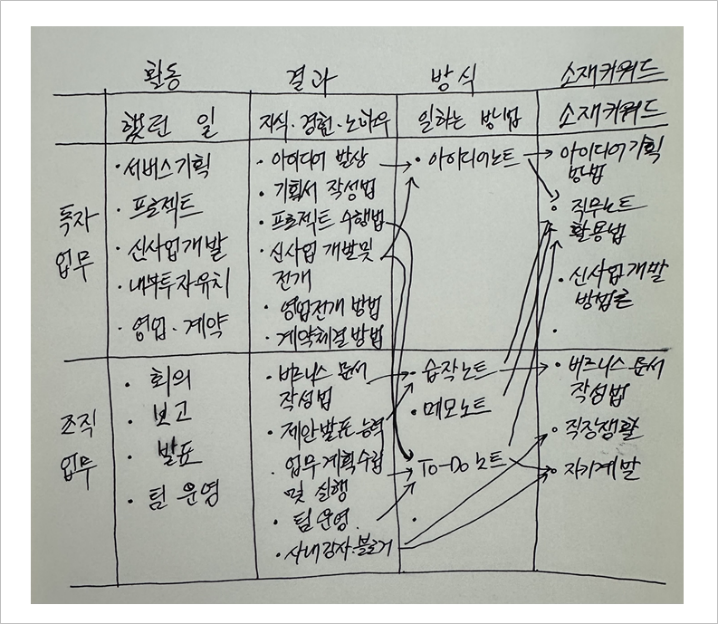 활동 결과 방식 소재키워드
했던 일 지식·경험·노하우 일하는 방법 소재키워드
독자
업무
· 서비스기획
· 프로젝트
· 신사업개발
· 내부투자유치
· 영업·계약
· 아이디어 발상
· 기획서 작성법
· 프로젝트 수행법
· 신사업 개발및
전개
· 영업전개 방법
· 계약체결 방법
· 아이디어노트
아이디어기획
방법
직무노트
활용법
· 신사업개발
방법론
·
조직
업무
· 회의
· 보고
· 발표
· 팀 운영
· 비즈니스 문서
작성법
· 제안발표 능력
업무계획수립
및 실행
· 팀 운영
· 사내강사·블로거
· 습작노트
· 메모노트
To-Do 노트
·
· 비즈니스 문서
작성법
직장생활
자기계발